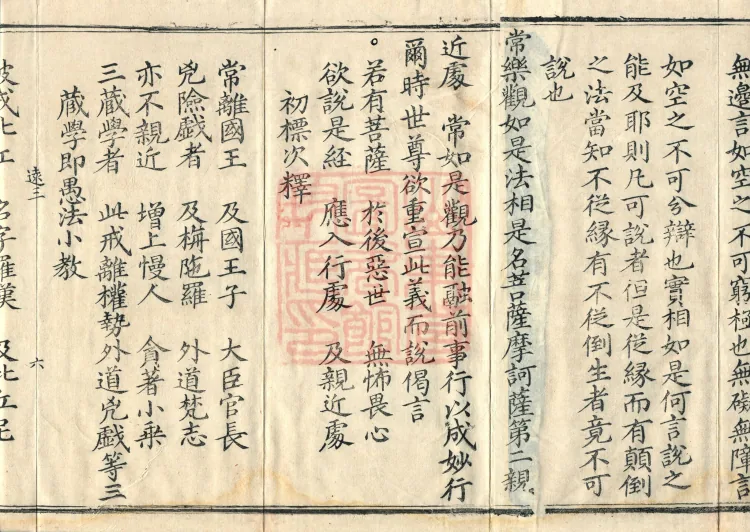 無邊言如空之不可窮極也無礙無障言
如空之不可分辯也實相如是何言說之
能及耶則凡可說者但是從緣而有顛倒
之法當知不從緣有不從倒生者竟不可
說也
常樂觀如是法相是名菩薩摩訶薩第二親
近處 常如是觀乃能融前事行以成妙行
爾時世尊欲重宣此義而說偈言
若有菩薩 於後惡世 無怖畏心
欲說是經 應入行處 及親近處
初標次釋
常離國王 及國王子 大臣官長
兇險戲者 及栴陁羅 外道梵志
亦不親近 增上慢人 貪著小乗
三藏學者 此戒離權勢外道兇戲等三
藏學即愚法小教
遠三 六
破戒比丘 名字羅漢 及比丘尼